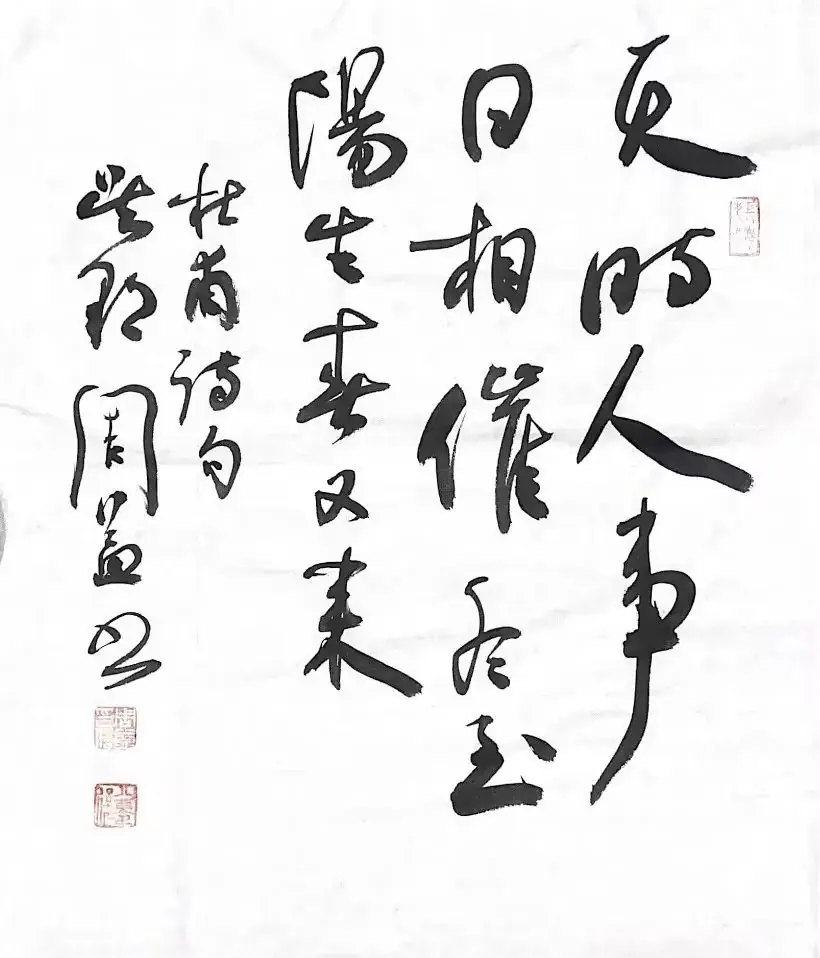 天时人事
日相催冬至
陽生春又来
杜甫诗句
周益书